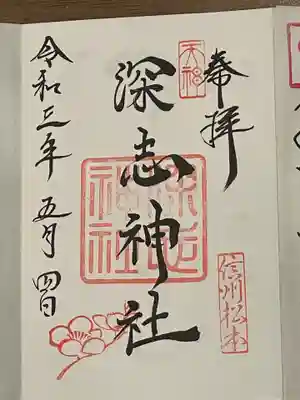 奉拝
天神
信州松本
深志神社
深志神社
令和三年五月四日